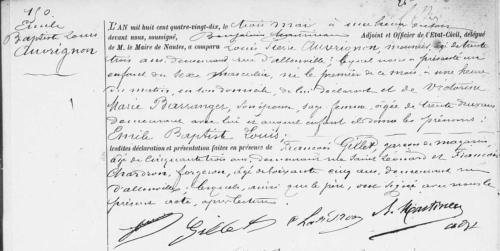 Emile
Baptist Louis
Auvrignon
L'AN mil huit cent quatre-vingt-dix, le trois mai à une heure du soir
devant nous, soussigné, Adjoint et Officier de l'Etat-Civil, délégué
de M. le Maire de Nantes, a comparu Louis Pierre Auvrignon âgé de trente
trois ans, demeurant rue d'allonville; lequel nous a présenté un
enfant du sexe masculin, né le premier de ce mois, à une heure
du matin, en son domicile, de lui déclarant et de Victorine
Marie Barranger, son épouse, sans femme, âgée de trente deux ans
demeurant avec lui et auquel enfant il donne les prénoms:
Emile Baptist Louis.
lesdites déclaration et présentation faites en présence de François Gillet, garçon de magasin
âgé de cinquante trois ans, demeurant rue Saint Léonard et François
Chardron, forgeron, âgé de soixante cinq ans, demeurant rue
d'allonville; lesquels, ainsi que le père, ont signé avec nous le
présent acte, après lecture.
Gillet